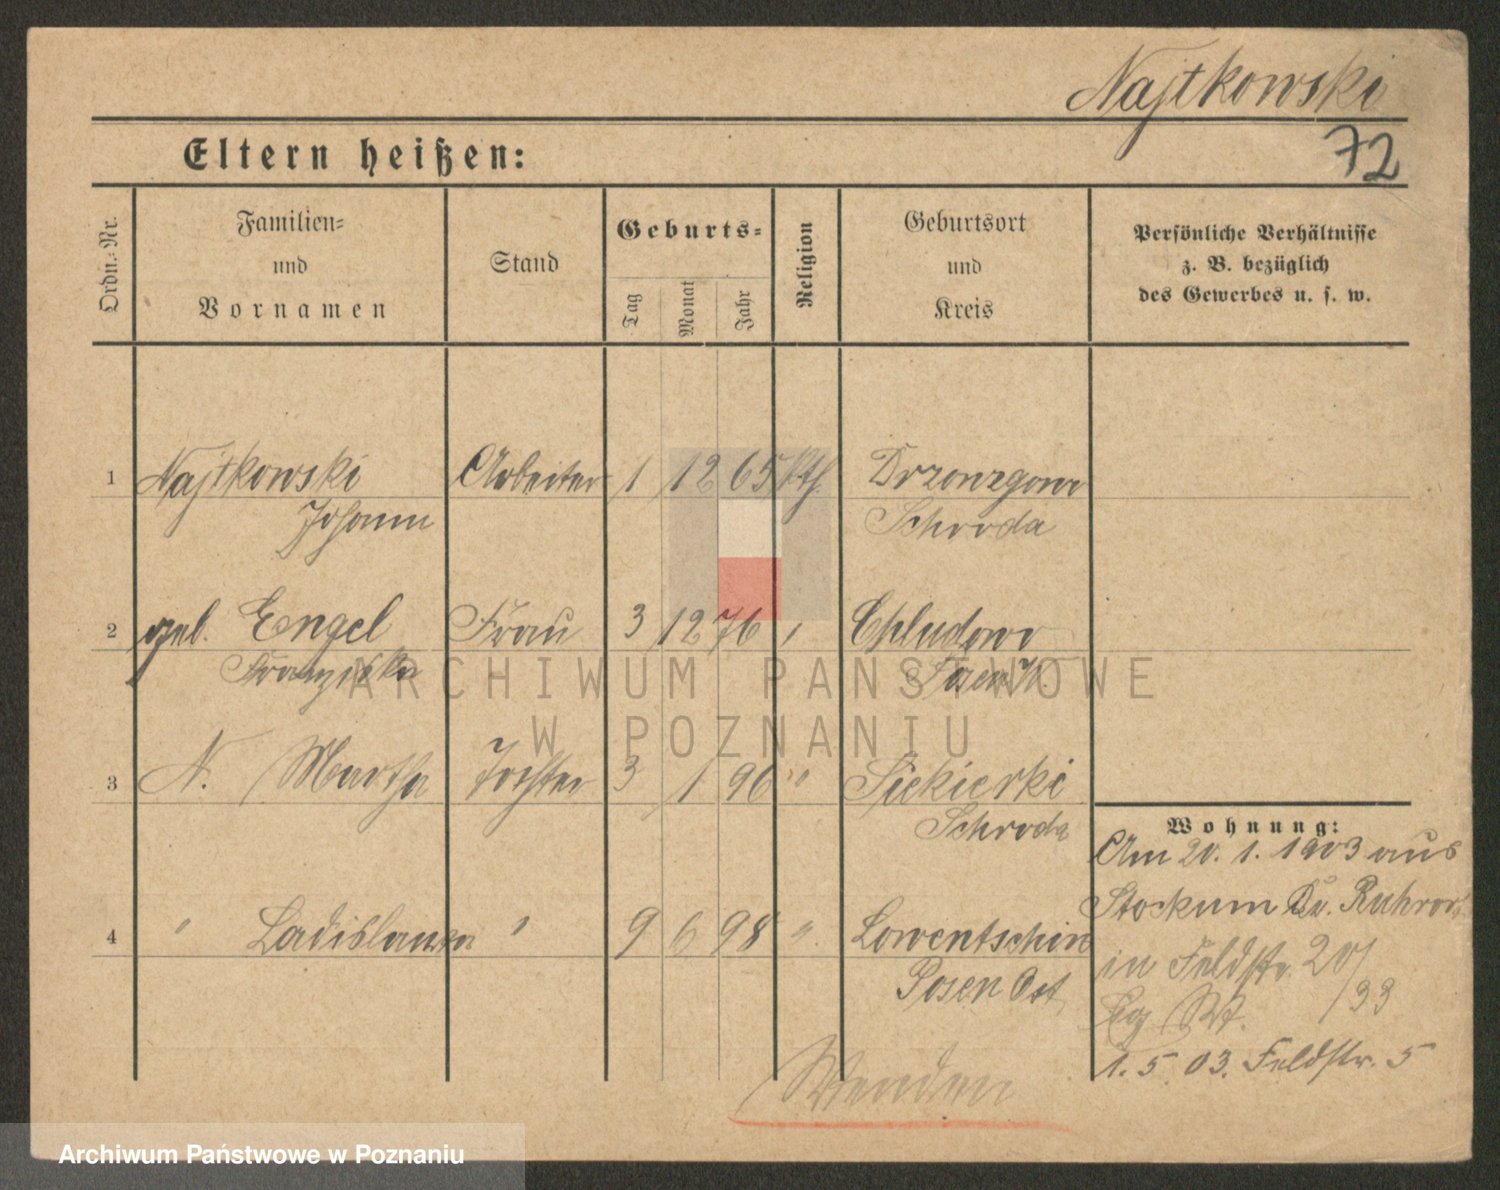 Najtkowski
72
Eltern heißen:
Ordn.-Nr.
Familien-
und
Vornamen
Stand
Geburts-
Tag
Monat
Jahr
Religion
Geburtsort
und
Kreis
Persönliche Verhältnisse
z. B. bezüglich
des Gewerbes u. s. w.
1 Najtkowski Arbeiter 1 12 65 kth. Drzonzgowo
Johann Schroda
2 geb. Engel Frau 3 12 76 Chludowo
Franziska Posen
3 N. Martha Tochter 3 1 96 " Siekierki
Schroda
4 " Ladislawa " 9 6 98 " Lowentschin
Posen Ost
Wohnung:
Am 20. 1. 1903 aus
Stockum Kr. Ruhrort
in Feldstr. 20/
/33
1. 5 03. Feldstr. 5
Wenden
ARCHIWUM PAŃSTWOWE
W POZNANIU
Archiwum Państwowe w Poznaniu